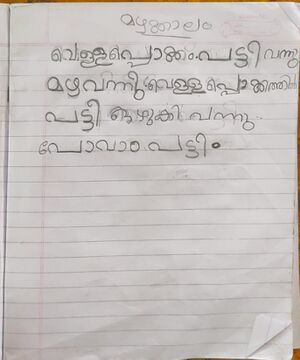 മഴക്കാലം
വെള്ളപ്പൊക്കം. പട്ടി വന്നു
മഴ വന്നു വെള്ളപ്പൊക്കത്തിൽ
പട്ടി ഒഴുകി വന്നു.
പോവാം പട്ടിം